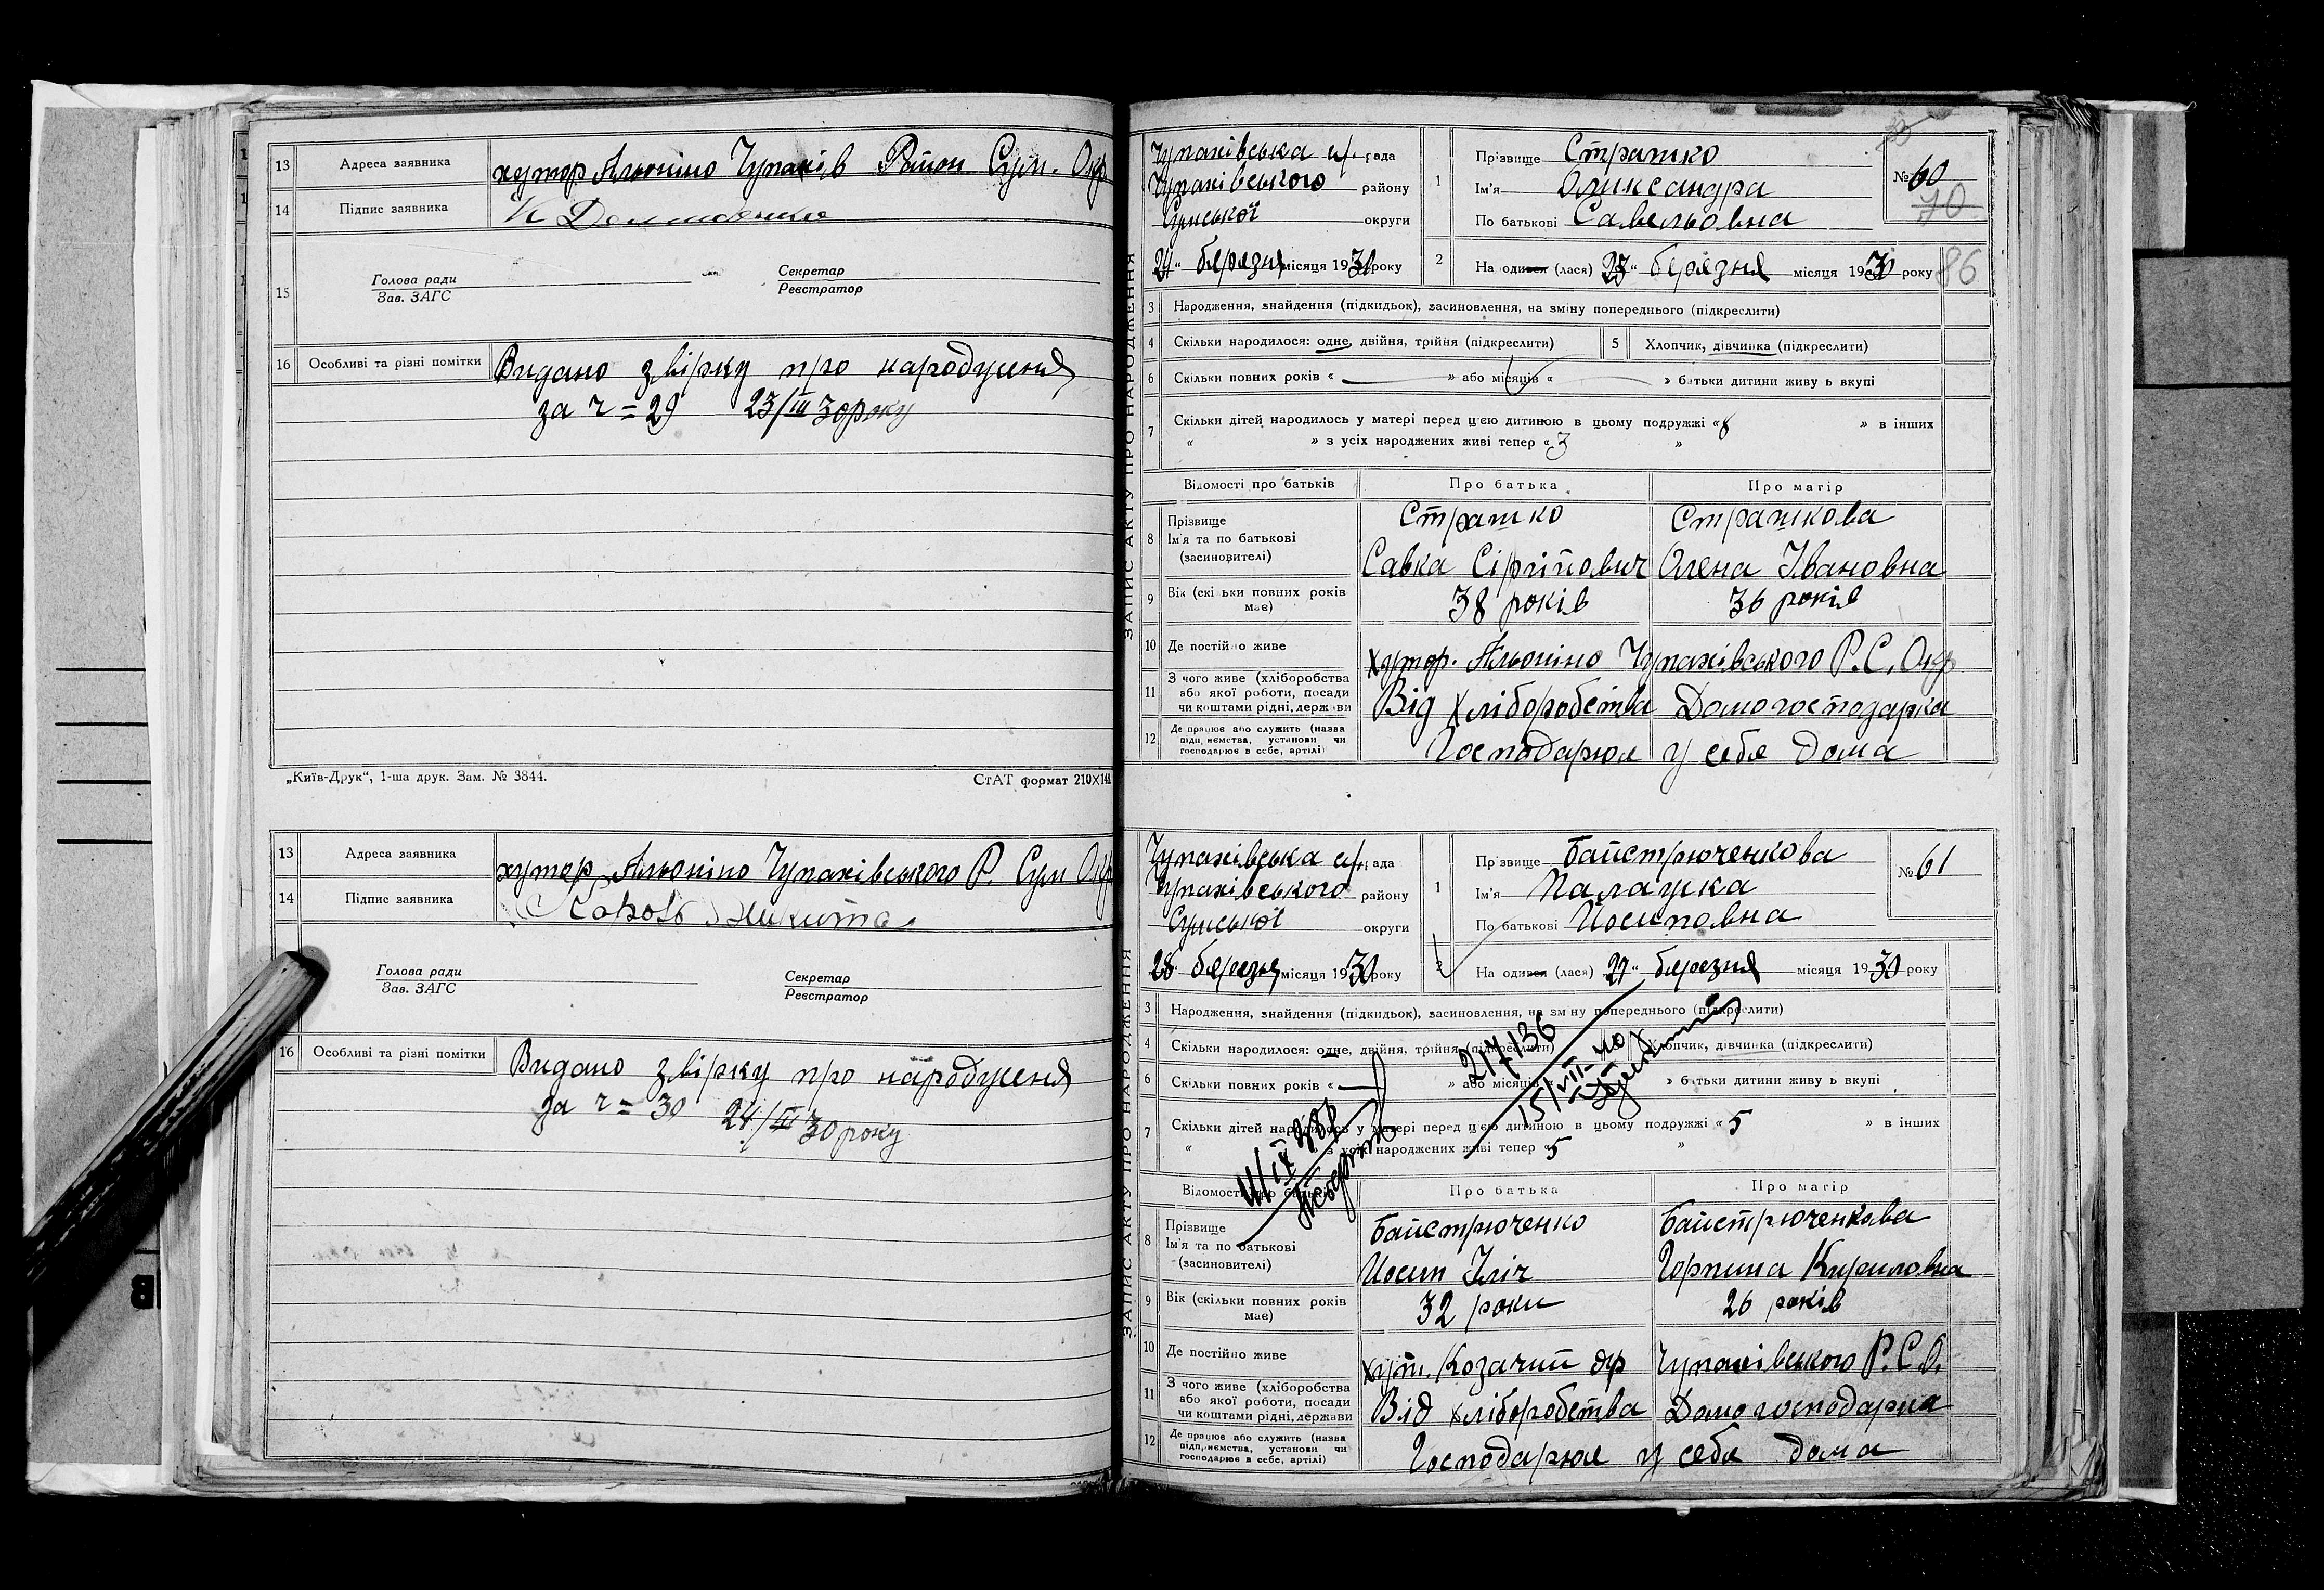 13 Адреса заявника хутор Альоніно Чупахів Район Сум. Окр.
14 Підпис заявника К
15 Голова ради Зав. ЗАГС Секретар Реєстратор
16 Особливі та різні помітки Видано звірку про народженя
за r = 29 23/III 30 року
„Київ-Друк“, 1-ша друк. Зам. № 3844. СтАТ формат 210X148
13 Адреса заявника хутор Альоніно Чупахівського Р. Сум Окр
14 Підпис заявника Никита
Голова ради Зав. ЗАГС Секретар Реєстратор
16 Особливі та різні помітки Видано звірку про народженя
за r = 30 24/III 30 року
ЗАПИС АКТУ ПРО НАРОДЖЕННЯ
Чупахівська с/. рада
Чупахівського району
Сумської округи
24 „ березня місяця 1930 року
1 Прізвище Страшко
Ім'я Оликсандра
По батькові Савельовна
№ 60
70
86
2 На одився (лася) 23 “ березня місяця 1930 року
3 Народження, знайдення (підкидьок), засиновлення, на зміну попереднього (підкреслити)
4 Скільки народилося: одне, двійня, трійня (підкреслити) 5 Хлопчик, дівчинка (підкреслити)
6 Скільки повних років « » або місяців « » батьки дитини живу ь вкупі
7 Скільки дітей народилось у матері перед ц'єю дитиною в цьому подружжі «8 » в інших
« » з усіх народжених живі тепер «3 »
Відомості про батьків Про батька Про матір
8 Прізвище Ім'я та по батькові (засиновителі) Страшко Страшкова
Савка Сіргіїович Олена Івановна
9 Вік (скі ьки повних років має) 38 років 36 років
10 Де постійно живе хутор. Альоніно Чупахівського Р.С. Окр
11 З чого живе (хліборобства або якої роботи, посади чи коштами рідні, держави Від хліборобства Домогосподарка
12 Де працює або служить (назва підприємства, установи чи господарює в себе, артілі) Господарює у себе дома
ЗАПИС АКТУ ПРО НАРОДЖЕННЯ
Чупахівська с/. рада
Чупахівського району
Сумської округи
28 “ березня місяця 1930 року
1 Прізвище Байстрюченкова
Ім'я Палажка
По батькові Йосиповна
№ 61
2 На одився (лася) 27 “ березня місяця 1930 року
3 Народження, знайдення (підкидьок), засиновлення, на зміну попереднього (підкреслити)
4 Скільки народилося: одне, двійня, трійня (підкреслити) Хлопчик, дівчинка (підкреслити)
6 Скільки повних років « » або місяців « » батьки дитини живу ь вкупі
217136
15/VII-40
7 Скільки дітей народилось у матері перед ц'єю дитиною в цьому подружжі «5 » в інших
« » з усіх народжених живі тепер «5 »
Відомості про батьків Про батька Про матір
8 Прізвище Ім'я та по батькові (засиновителі) Байстрюченко Байстрюченкова
Йосип Іліч Горпина Кириловна
9 Вік (скільки повних років має) 32 роки 26 років
10 Де постійно живе хут. Козачий Яр Чупахівського Р.С.О.
11 З чого живе (хліборобства або якої роботи, посади чи коштами рідні, держави Від хліборобства Домогосподарка
12 Де працює або служить (назва підприємства, установи чи господарює в себе, артілі) Господарює у себе дома